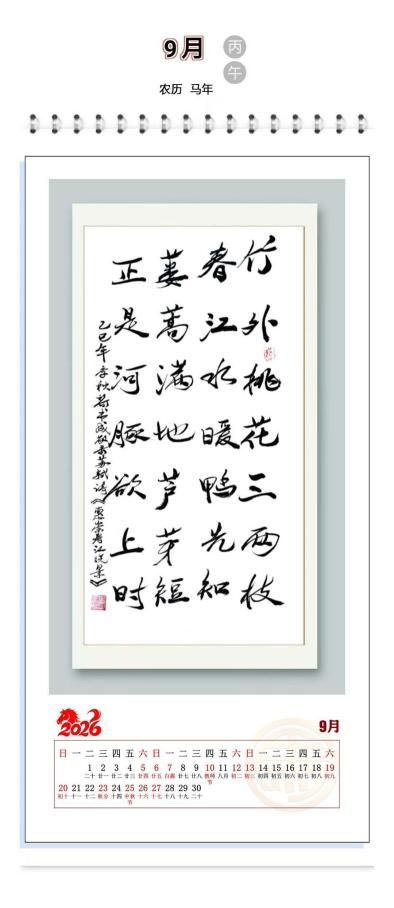 9月
丙午
农历 马年
竹外桃花三两枝
春江水暖鸭先知
蒌蒿满地芦芽短
正是河豚欲上时
乙巳年季秋 书 苏轼诗《惠崇春江晚景》
2026
9月
日 一 二 三 四 五 六 日 一 二 三 四 五 六 日 一 二 三 四 五 六
1 2 3 4 5 6 7 8 9 10 11 12 13 14 15 16 17 18 19
二十 廿一 廿二 廿三 廿四 廿五 白露 廿七 廿八 教师节 八月 初二 初三 初四 初五 初六 初七 初八 初九
20 21 22 23 24 25 26 27 28 29 30
初十 十一 十二 秋分 十四 中秋节 十六 十七 十八 十九 二十